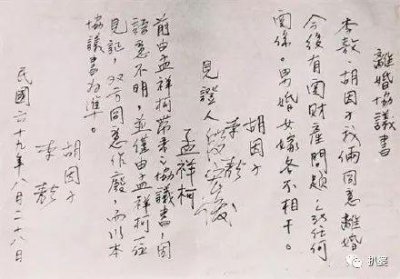 離婚協議書
李敖、胡因子我倆同意離婚
今後有関財產問題之任何
関係。男婚女嫁各不相干。
胡因子
李敖
見證人
孟祥柯
前由孟祥柯帶來之協議書，因
語意不明，並僅由孟祥柯一位
見証，双方同意作廢，而以本
協議書為準。
胡因子
李敖
民國六十九年八月二十八日